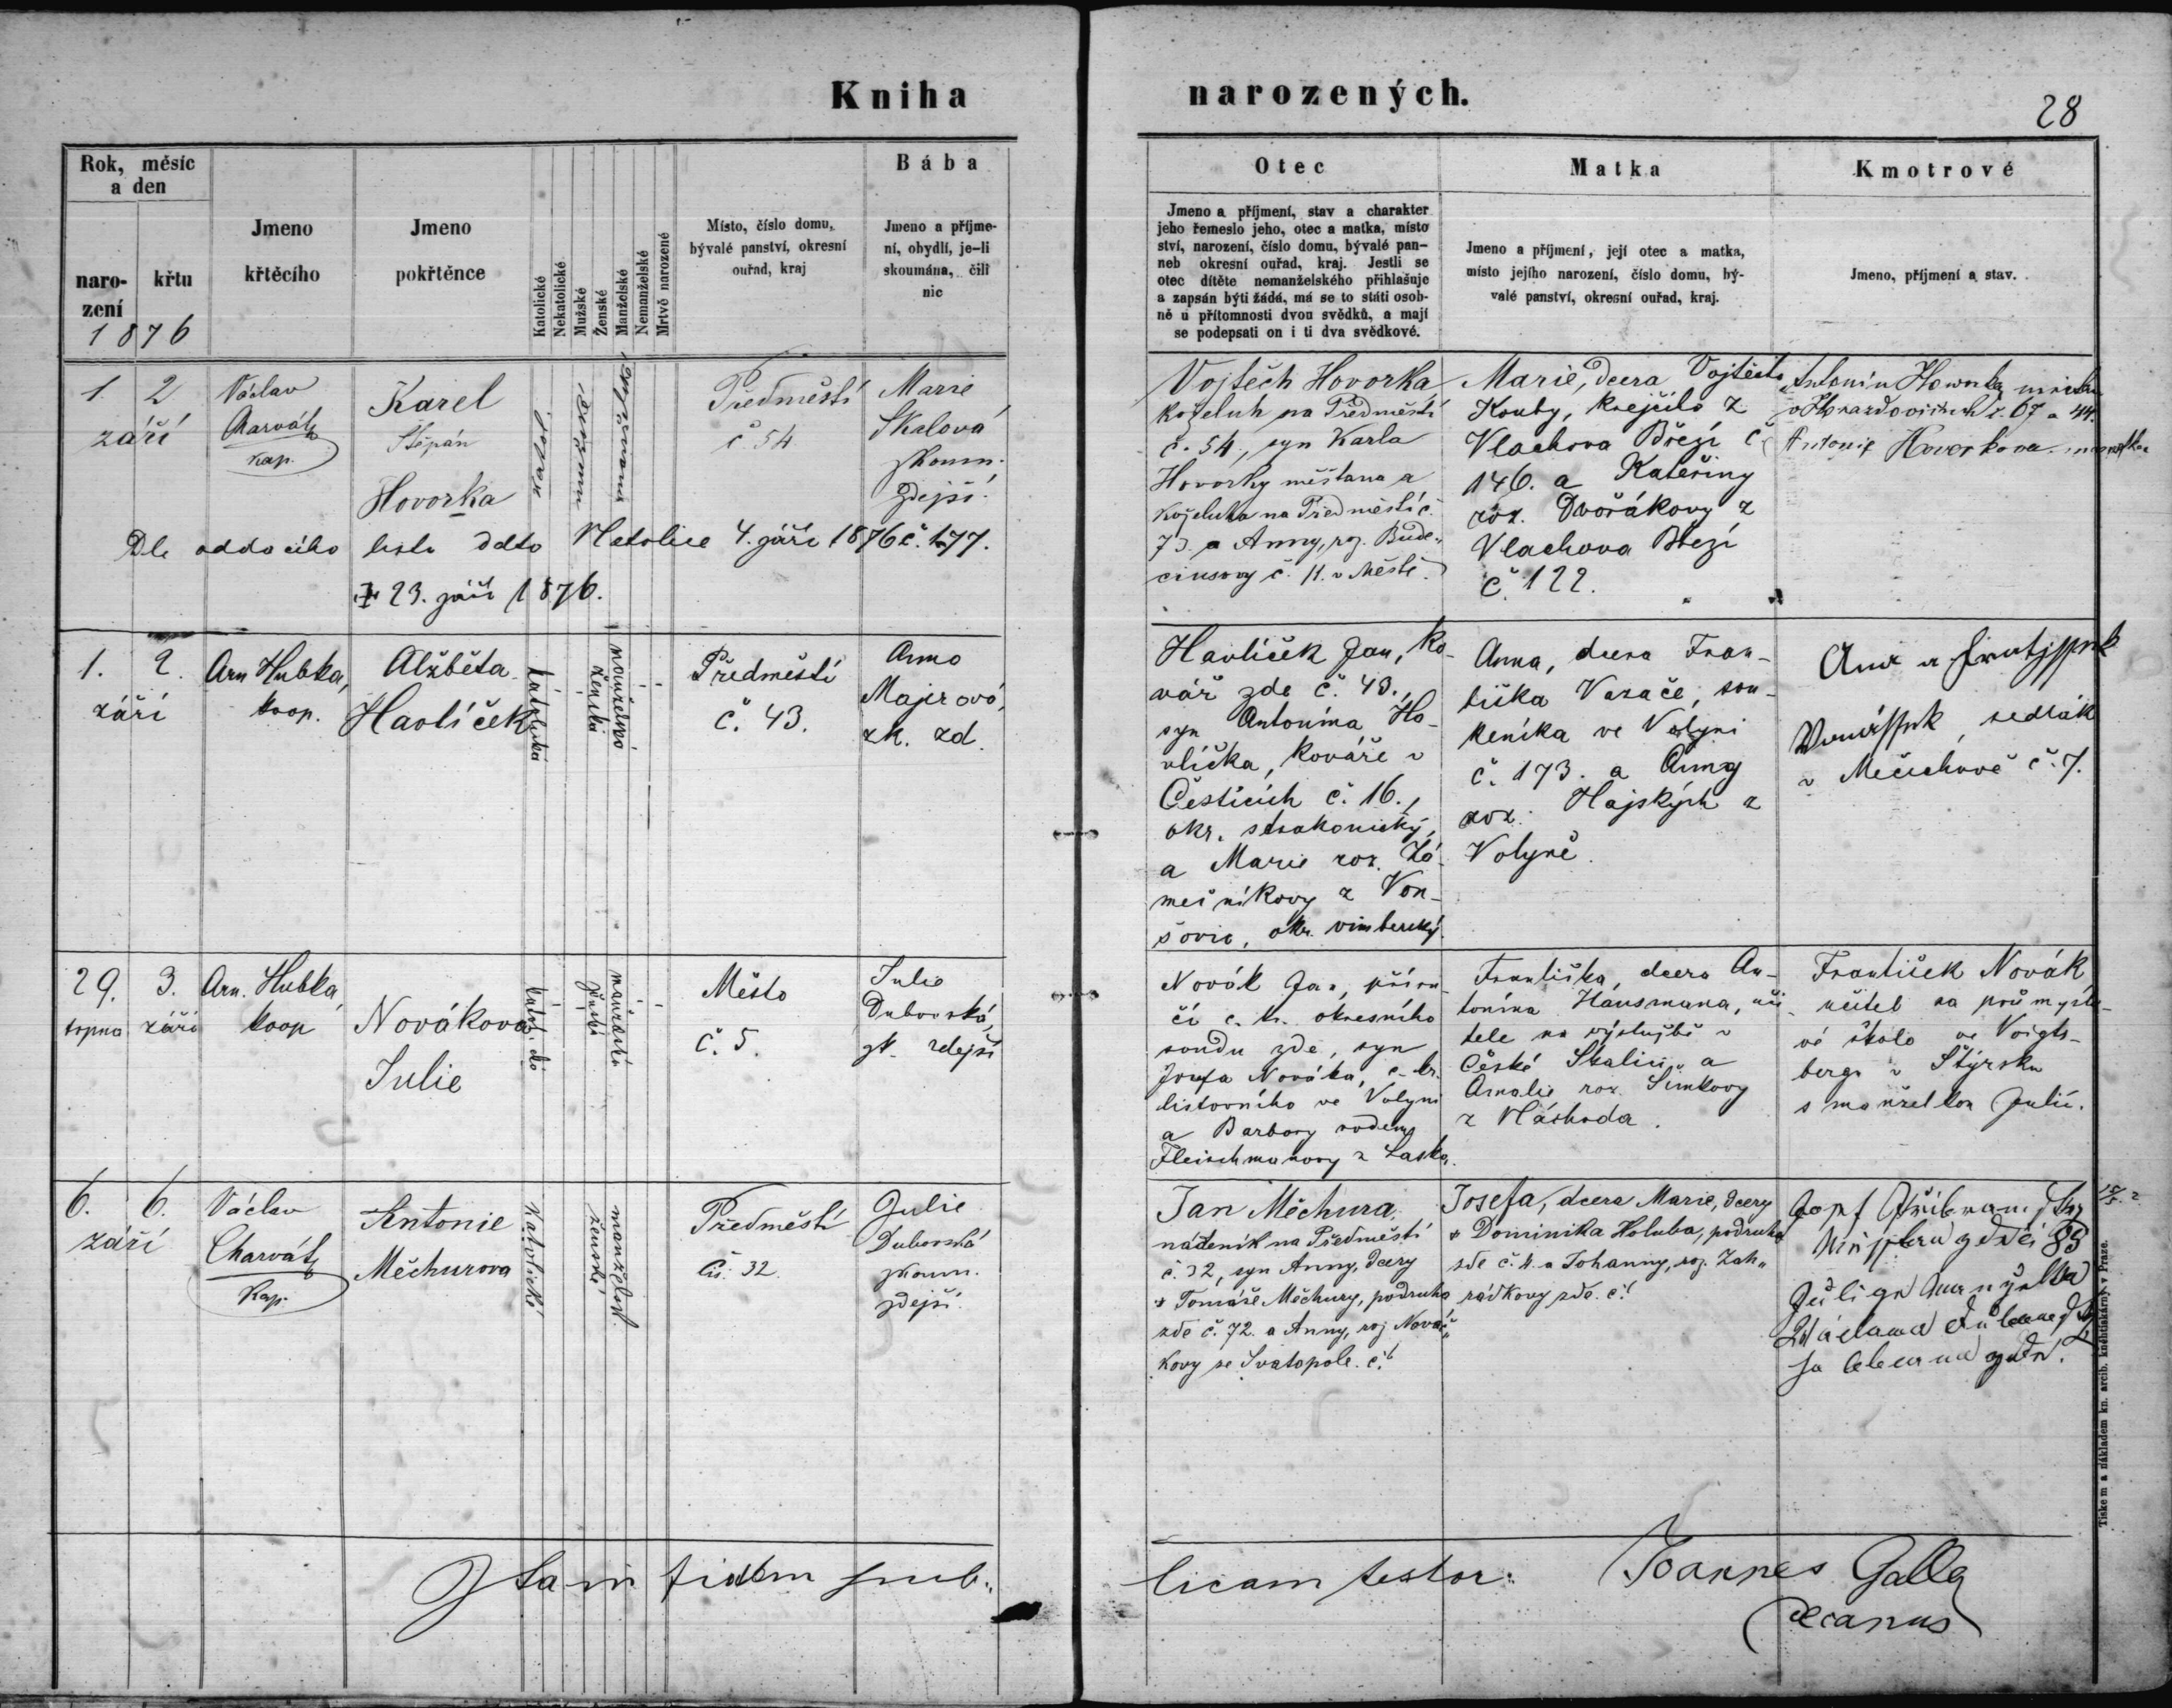 Kniha narozených.
28
Rok, měsíc
a den
naro-
zení
křtu
1876
Jmeno
křtěcího
Jmeno
pokřtěnce
Katolické
Nekatolické
Mužské
Ženské
Manželské
Nemanželské
Mrtvě narozené
Místo, číslo domu,
bývalé panství, okresní
ouřad, kraj
Bába
Jmeno a příjme-
ní, obydlí, je-li
skoumána, čili
nic
Otec
Jmeno a příjmení, stav a charakter
jeho řemeslo jeho, otec a matka, místo
ství, narození, číslo domu, bývalé pan-
neb okresní ouřad, kraj. Jestli se
otec dítěte nemanželského přihlašuje
a zapsán býti žádá, má se to státi osob-
ně u přítomnosti dvou svědků, a mají
se podepsati on i ti dva svědkové.
Matka
Jmeno a příjmení, její otec a matka,
místo jejího narození, číslo domu, bý-
valé panství, okresní ouřad, kraj.
Kmotrové
Jmeno, příjmení a stav.
1. 2
září
Václav
Charvát
kap.
Karel
Štěpán
Hovorka
Předměstí
č 54
Marie
Skalová
skoum.
zdejší.
Dle oddacího listu ddto Netolice 4. září 1876 č. 177.
23. září 1876.
Vojtěch Hovorka
koželuh na Předměstí
č. 54, syn Karla
Hovorky měšťana a
koželuha na Předměstí č.
73 a Anny, roz. Bude-
ciusovy č. 11. v Městě.
Marie, dcera Vojtěcha
Kouby, krejčího z
Vlachova Březí č
146. a Kateřiny
roz. Dvořákovy z
Vlachova Březí
č. 122.
Antonín Hovorka
v Horažďovicích č. 67 a 44.
Antonie Hovorkova
1. 2.
září
Arn Hubka,
koop.
Alžběta
Havlíček
katolická
ženská
manželská
Předměstí
č. 43.
Anna
Majerová,
zk. zd.
Havlíček Jan, ko-
vář zde č. 43.,
syn Antonína Ha-
vlíčka, kováře v
Čestících č. 16.,
okr. strakonický,
a Marie roz. Zá-
mečníkovy z Von-
šovic, okr. vimberský.
Anna, dcera Fran-
tiška Vazače, sou-
keníka ve Volyni
č. 173. a Anny
roz. Hajských z
Volyně.
sedlák
v Mečichově č. 7.
29. 3.
srpna září
Arn. Hubka,
koop
Novákova
Julie
Město
č. 5.
Julie
Dubovská,
zk. zdejší
Novák Jan, příru-
čí c. k. okresního
soudu zde, syn
Josefa Nováka, c. k.
listovního ve Volyni
a Barbory rodem
Fleischmanovy z Laska.
Františka, dcera An-
tonína Hausmana, uči-
tele na výslužbě v
České Skalici a
Amalie roz. Šimkovy
z Náchoda.
František Novák
učitel na průmyslo-
vé škole ve Voigts-
bergu v Štýrsku
s manželkou Julií.
6. 6.
září
Václav
Charvát
Kap.
Antonie
Měchurova
Katolické
ženské
manželské
Předměstí
Čís. 32.
Julie
Dubovská
skoum.
zdejší.
Jan Měchura
nádeník na Předměstí
č. 32, syn Anny, dcery
Tomáše Měchury, podruha
zde č. 72. a Anny, roz. Nová-
kovy ze Svatopole. č.
Josefa, dcera Marie, dcery
Dominika Holuba, podruha
zde č. 4. a Johanny, roz. Zah-
rádkovy zde. č.
89
Itam fidem pub-
licam testor:
Joannes Galla
decanus
Tiskem a nákladem kn. arcib. knihtiskárny v Praze.